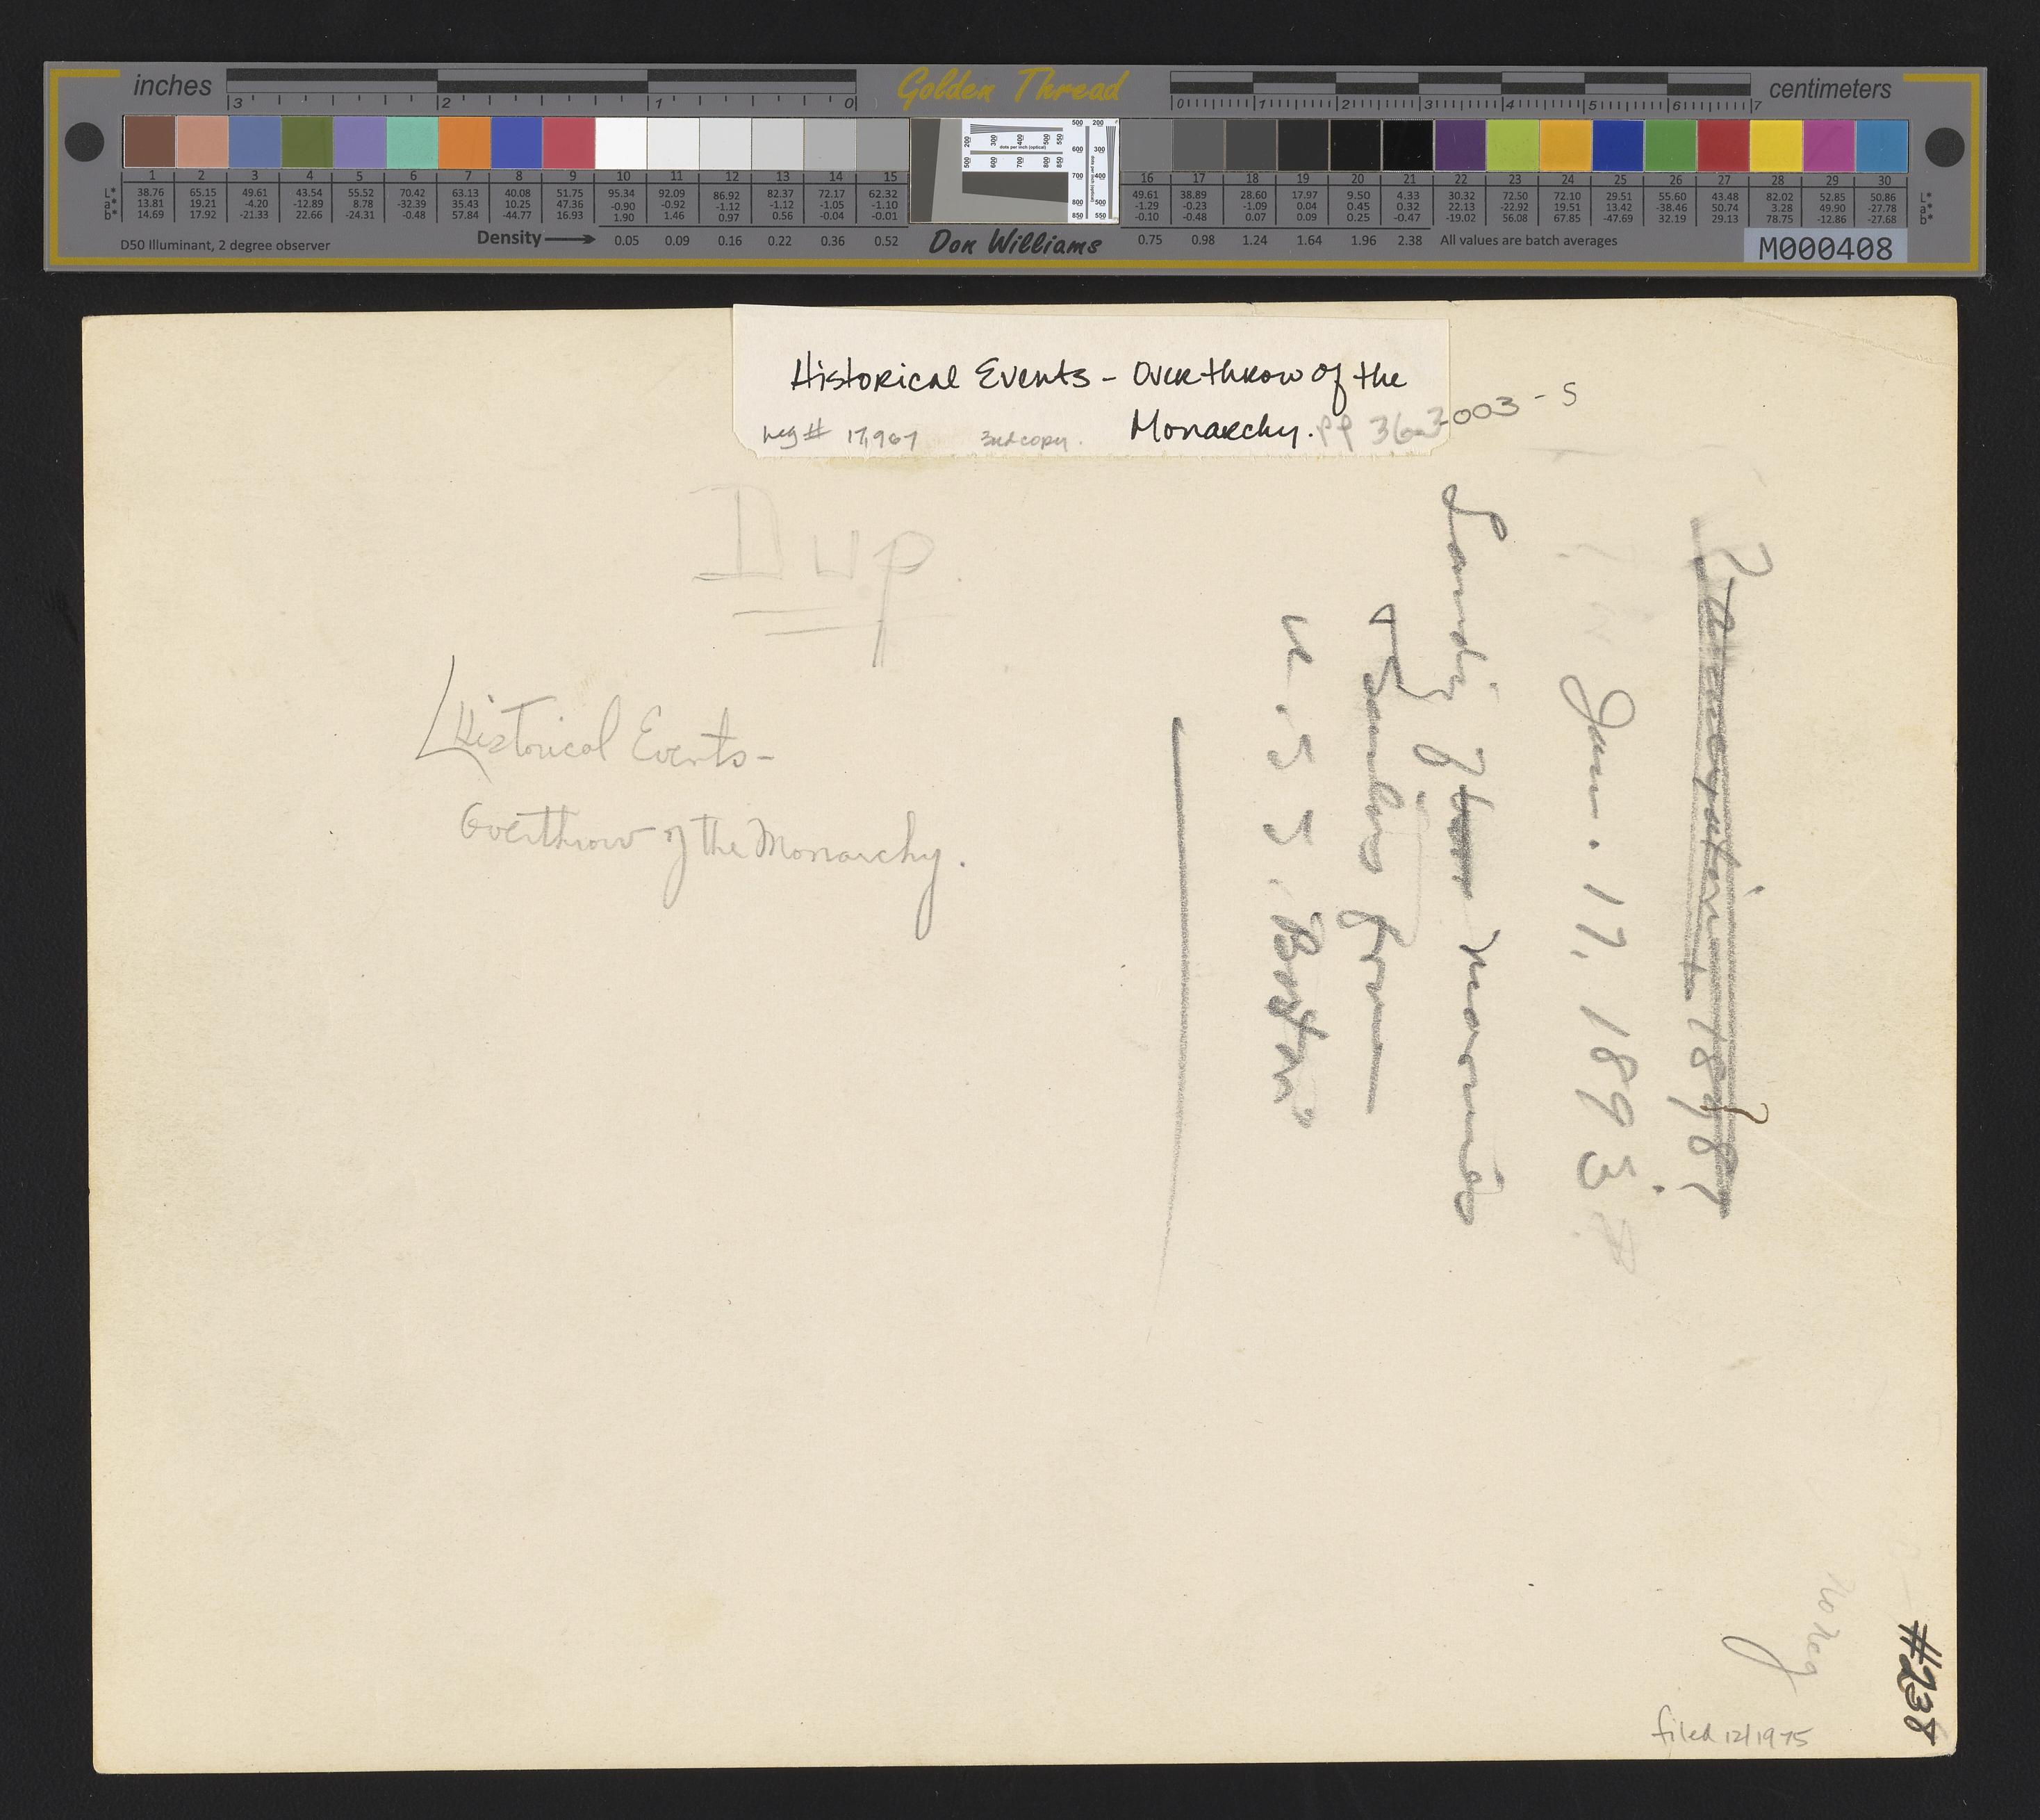 inches
3 2 1 0
Golden Thread
0 1 2 3 4 5 6 7
centimeters
1 2 3 4 5 6 7 8 9 10 11 12 13 14 15
16 17 18 19 20 21 22 23 24 25 26 27 28 29 30
L* 38.76 65.15 49.61 43.54 55.52 70.42 63.13 40.08 51.75 95.34 92.09 86.92 82.37 72.17 62.32
a* 13.81 19.21 -4.20 -12.89 8.78 -32.39 35.43 10.25 47.36 -0.90 -0.92 -1.12 -1.12 -1.05 -1.10
b* 14.69 17.92 -21.33 22.66 -24.31 -0.48 57.84 -44.77 16.93 1.90 1.46 0.97 0.56 -0.04 -0.01
49.61 38.89 28.60 17.97 9.50 4.33 30.32 72.50 72.10 29.51 55.60 43.48 82.02 52.85 50.86 L*
-1.29 -0.23 -1.09 0.04 0.45 0.32 22.13 -22.92 19.51 13.42 -38.46 50.74 3.28 49.90 -27.78 a*
-0.10 -0.48 0.07 0.09 0.25 -0.47 -19.02 56.08 67.85 -47.69 32.19 29.13 78.75 -12.86 -27.68 b*
D50 Illuminant, 2 degree observer
Density 0.05 0.09 0.16 0.22 0.36 0.52
Don Williams
0.75 0.98 1.24 1.64 1.96 2.38 All values are batch averages
M000408
Historical Events - Overthrow of the
Monarchy.
neg # 17,967 3rd copy. PP 36-3-003-S
Dup.
Historical Events-
Overthrow of the Monarchy.
Jan. 17, 1893
Landing of marines
from
U.S.S. Boston
No neg
#238
filed 12/1975